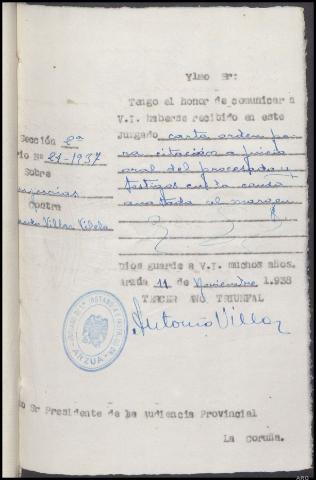 Ylmo Sr:
Tengo el honor de comunicar a
V.I. haberse recibido en este
Juzgado carta orden pa-
ra citación a juicio
oral del procesado y
testigos en la causa
anotada al margen
ección 2ª
io Nº 21-1937
Sobre
Contra
Villar
Dios guarde a V.I. muchos años.
Arzúa 11 de Noviembre 1.938
TERCER AÑO TRIUNFAL
Antonio Villar
ARZUA
o Sr Presidente de la Audiencia Provincial
La Coruña.